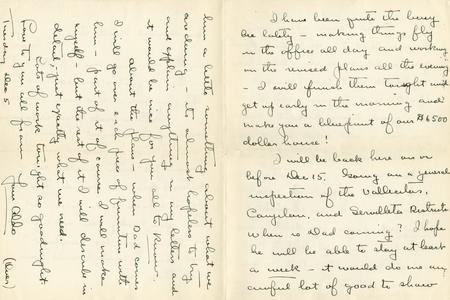 I have been quite the busy
bee lately - making things fly
in the office all day and working
on the revised plans all the evening
- I will finish them tonight and
get up early in the morning and
make you a blueprint of our $6500
dollar house!
I will be back here on or
before Dec 15. Going on a general
inspection of the Vallecitos,
Canjilon, and Servilleta Districts
When is Dad coming? I hope
he will be able to stay at least
a week - it would do me an
awful lot of good to show
him a little something about what we
are doing - it is almost hopeless to try
and explain anything in my letters and
it would be nice for you all to know
about the plans - when Dad comes
I will go over each piece of furniture with
him - part of it of course I will make
myself - but the rest of it I will describe in
detail, just exactly what we need.
Lots of work tonight so goodnight
Love to you all from your
Tuesday Dec 5